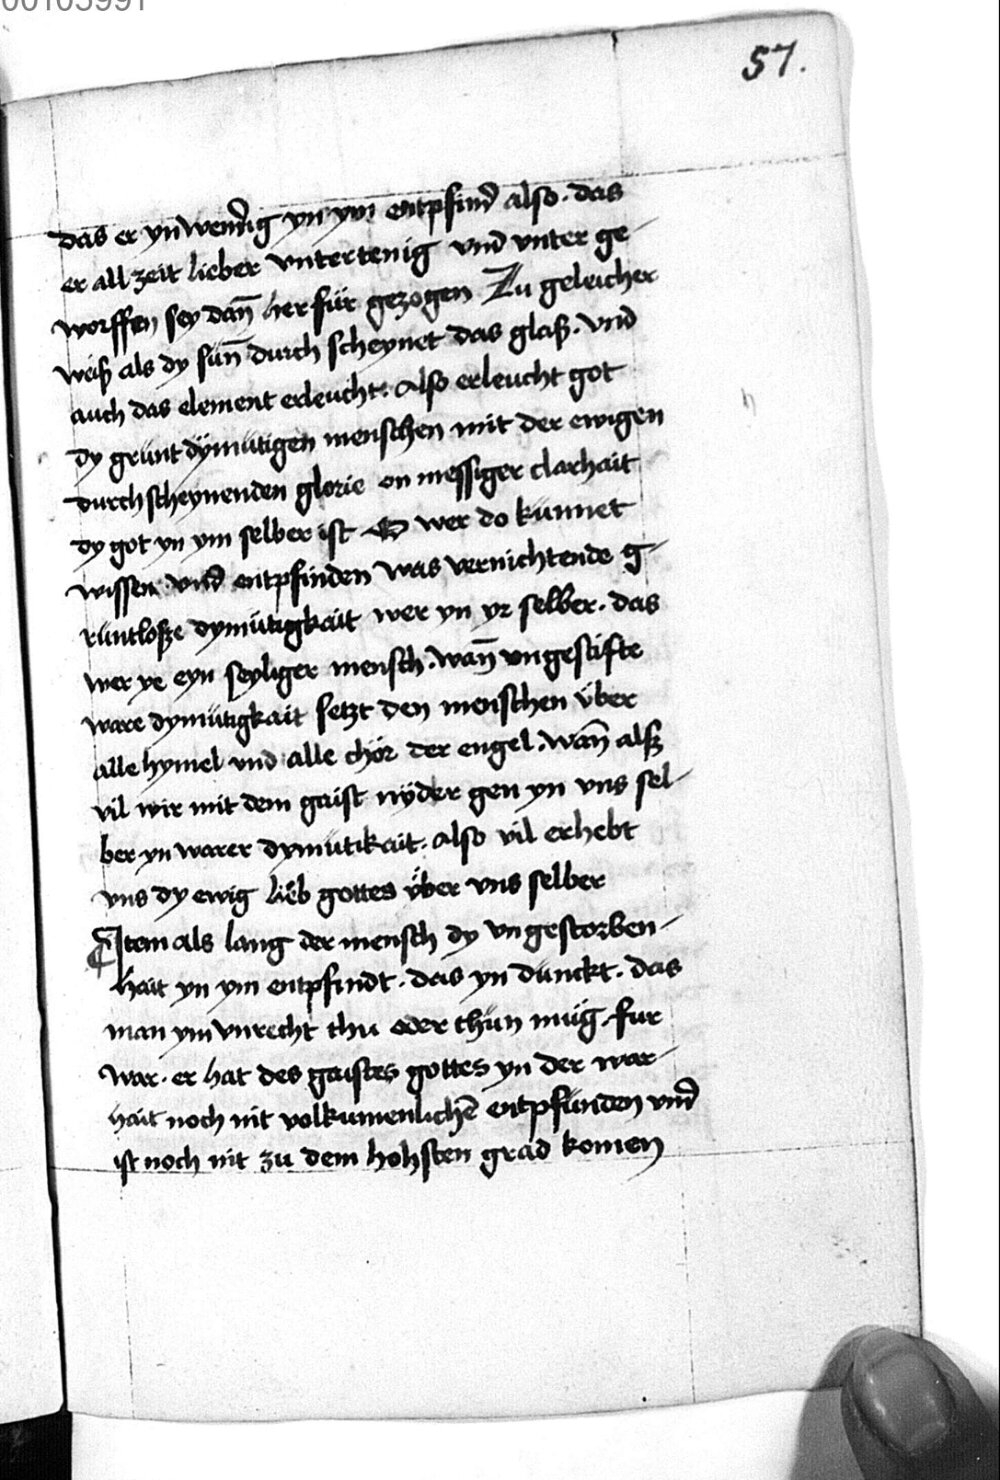 00103991
57.
das er ynwendig yn ym entpfind also. das
er all zeit lieber untertenig und unter ge-
worffen sey dan̄ her für gezogen Zu geleicher
weiß als dy sun̄ durch scheynet das glaß. und
auch das element erleucht. Also erleucht got
dy grunt dÿmütigen menschen mit der ewigen
durchscheynenden glorie on messiger clarhait
dy got yn ym selber ist O wer do künnet
wissen und entpfinden was vernichtende g-
rüntloße dymütigkait wer yn yr selber. das
wer ye eyn seyliger mensch. wan̄ ungestifte
ware dymütigkait setzt den menschen über
alle hymel und alle chör der engel. wan̄ alß
vil wir mit dem gaist nÿder gen yn uns sel-
ber yn warer dymütikait. also vil erhebt
uns dy ewig lieb gottes über uns selber
Item als lang der mensch dy ungestorben-
hait yn ym entpfindt. das yn dünckt. das
man ym unrecht thu oder thün müg. fur
war. er hat des gaistes gottes yn der war-
hait noch nit volkumenlichē entpfunden und
ist noch nit zu dem hohsten grad komen